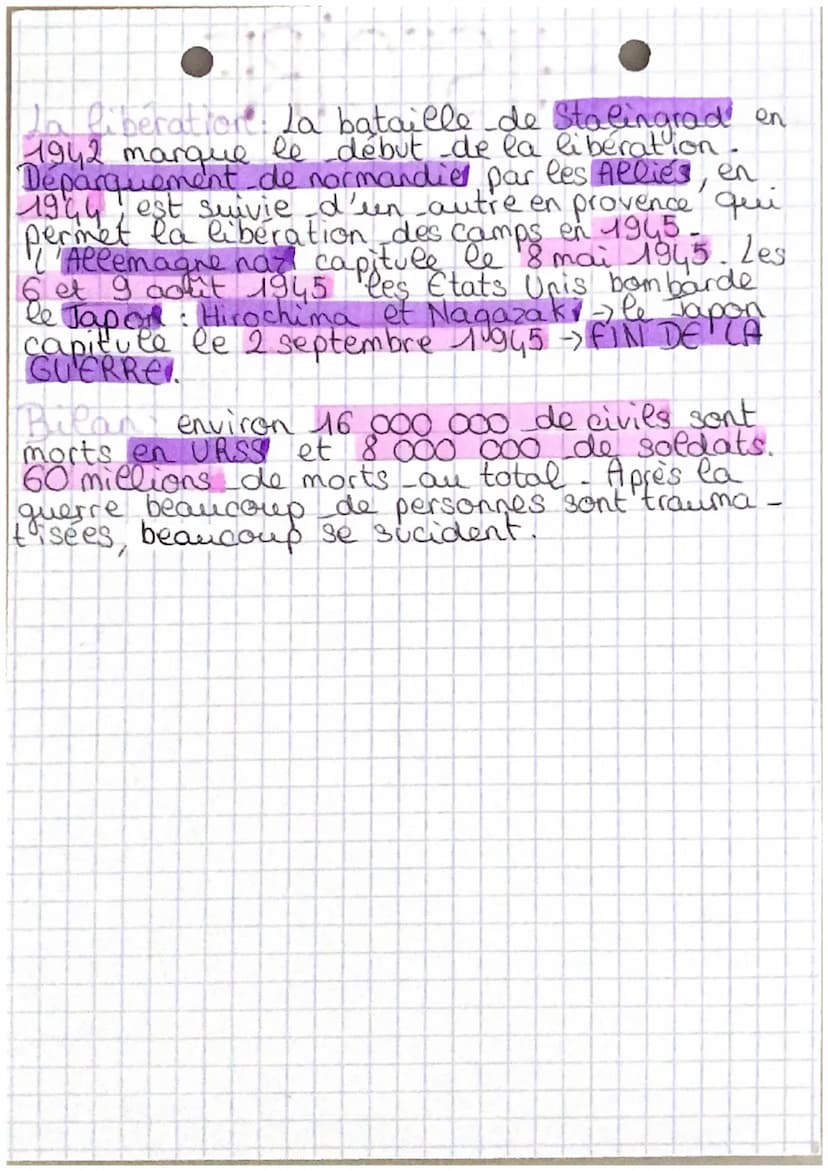 La libération: La bataille de Stalingrad en
1942 marque le début de la libération.
Déparquement de normandie par les Alliés, en
1944, est suivie d'un autre en provence qui
permet la libération des camps en 1945.
L'Allemagne nazi capitule le 8 mai 1945. Les
6 et 9 août 1945 les Etats Unis bombarde
le Japon : Hirochima et Nagazaki → le Japon
capitule le 2 septembre 1945 → FIN DE LA
GUERRE.
Bilan : environ 16 000 000 de civils sont
morts en URSS et 8 000 000 de soldats.
60 millions de morts au total. Après la
guerre beaucoup de personnes sont trauma-
tisées, beaucoup se sucident.